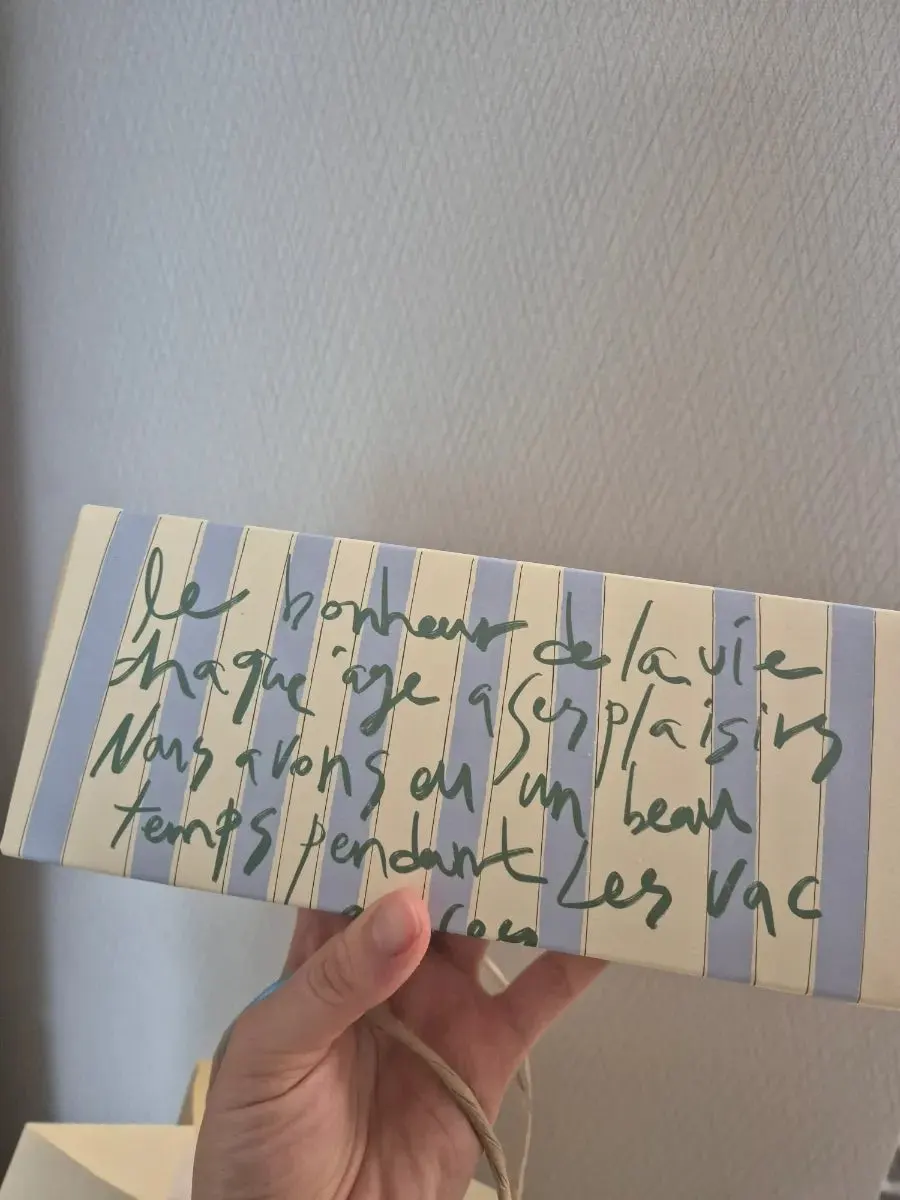 le bonheur de la vie
chaque âge a ses plaisirs
Nous avons eu un beau
temps pendant les vac